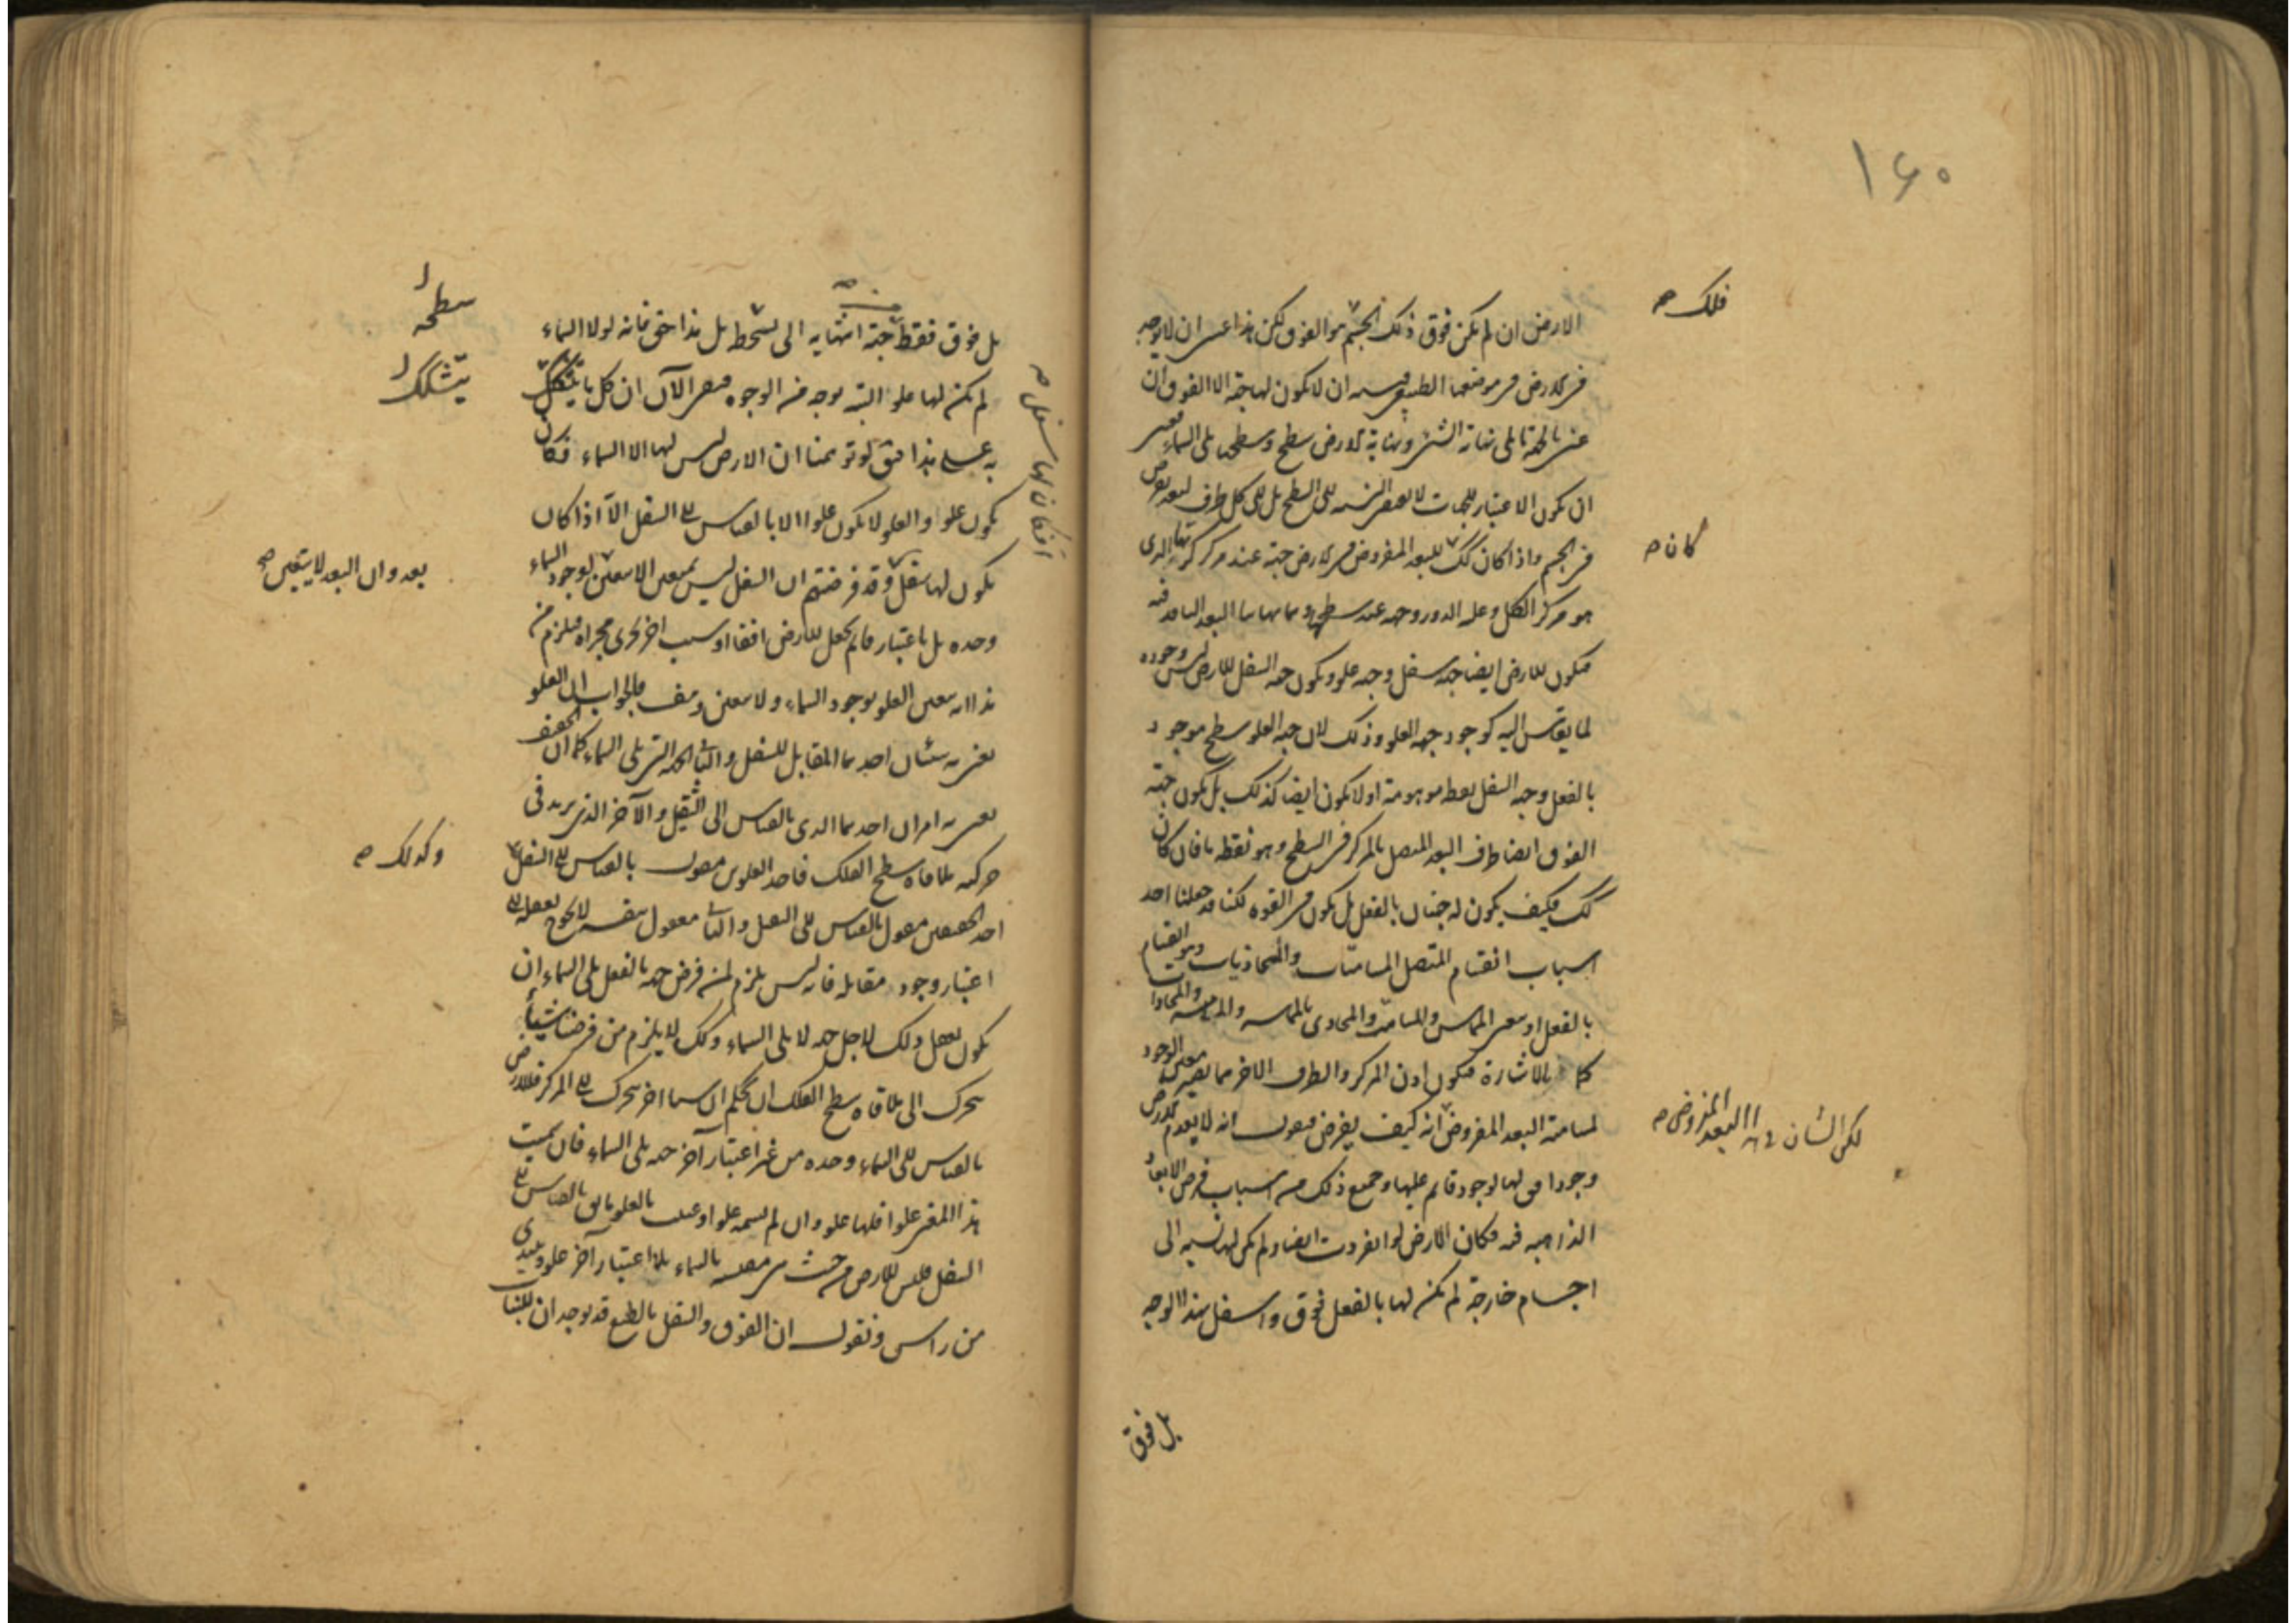 ١٦٠
فلك صح
الارض ان لم يكن فوق ذلك الجسم هو الفوق لكن هذا عسى ان لا يوجد
فى الارض فى موضعها الطبيعى ان لا يكون لها جهة الا الفوق ان
عنى بالجهة ما يلى نهاية الشئ ونهاية الارض سطح وسطحها يلى السماء
ان يكون الاعتبار للجهات لا السطح بل كل طرف لبعد يفرض
كان صح
فى الجسم واذا كان كك للبعد المفروض فى الارض جهة عند مركز كريتها الذى
هو مركز الكل وعليه الدور وجهة عند سطحها البعد فيه
فيكون للارض ايضا جهة سفل وجهة علو ويكون جهة السفل للارض ليس وجوده
لما يقاس اليه كوجود جهة العلو وذلك لان جهة العلو سطح موجود
بالفعل وجهة السفل نقطة موهومة اولا يكون ايضا كذلك بل يكون جهة
الفوق ايضا طرف البعد المتصل بالمركز فى السطح وهو نقطة ما فان كان
كك فكيف يكون له جهتان بالفعل بل يكون فى القوة لكنا قد جعلنا احد
اسباب انقسام المتصل المسامتات والمحاذيات وهو انقسام
بالفعل او يصير المماس والمسامت والمحاذى بالمماسة والمسامتة والمحاذاة
كما بالاشارة فيكون اذن المركز والطرف الاخر مما يصير معين الوجود
لكن الشان فى البعد المفروض صح
لمسامتة البعد المفروض انه كيف يفرض فنقول انه لا يعدم للارض
وجود افق لها لوجود قائم عليها وجميع ذلك من اسباب فرض الابعاد
الذاهبة فيه فكان الارض لو انفردت ايضا ولم يكن لها نسبة الى
اجسام خارجة لم يكن لها بالفعل فوق واسفل بهذا الوجه
بل فوق
بل فوق فقط جهة انتهائه الى سطح بل هذا حق فانه لولا السماء
سطحه
لم يكن لها علو البتة بوجه من الوجوه الآن ان كل ما يتشكك
يتشكك
به على هذا حق لو توهمنا ان الارض ليس لها الا السماء فكان
يكون علوا والعلو لا يكون علوا الا بالقياس الى السفل الا اذا كان
افكان لها سفل صح
يكون لها سفل وقد فرضتم ان السفل ليس يتعين الا بتعين لوجود السماء
بعد وان البعد لا يتعين صح
وحده بل باعتبار قائم يجعل للارض افقا او سبب اخر يجرى مجراه فيلزم من
هذا انه يتعين العلو بوجود السماء ولا يتعين وهف فالجواب ان العلو
يعنى به شيئان احدهما المقابل للسفل والثانى الجهة التى تلى السماء كما ان الخفيف
يعنى به امران احدهما الذى بالقياس الى الثقيل والآخر الذى يريد فى
حركته ملاقاة سطح الفلك فاحد العلوين مقول بالقياس الى السفل
وكذلك صح
احد الخفيفين مقول بالقياس الى الثقيل والثانى معقول بنفسه لا يحوج تعقله الى
اعتبار وجود مقابله فانه ليس يلزم من فرض جهة بالفعل تلى السماء ان
يكون تعقل ذلك لاجل جهة لا تلى السماء وكك لا يلزم من فرضنا شيئا
يتحرك الى ملاقاة سطح الفلك ان نحكم ان شيئا اخر يتحرك الى المركز فللارض
بالقياس الى السماء وحده من غير اعتبار آخر جهة تلى السماء فان سميت
هذا المعنى علوا فلها علو وان لم تسمه علوا او عنيت بالعلو ما هو بالقياس الى
السفل فليس للارض من حيث هى مقيسة بالسماء بلا اعتبار آخر علو ونبتدى
من راس ونقول ان الفوق والسفل بالطبع قد يوجدان للنبات